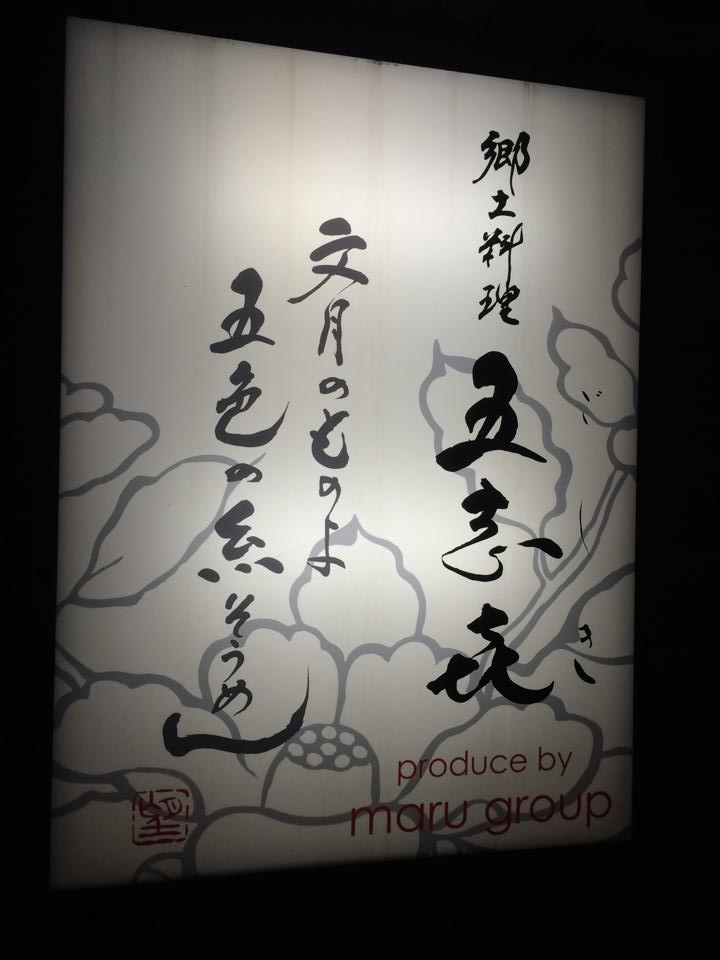 郷土料理
五志㐂
ごしき
文月のものよ
五色の糸そうめん
produce by
maru group
望